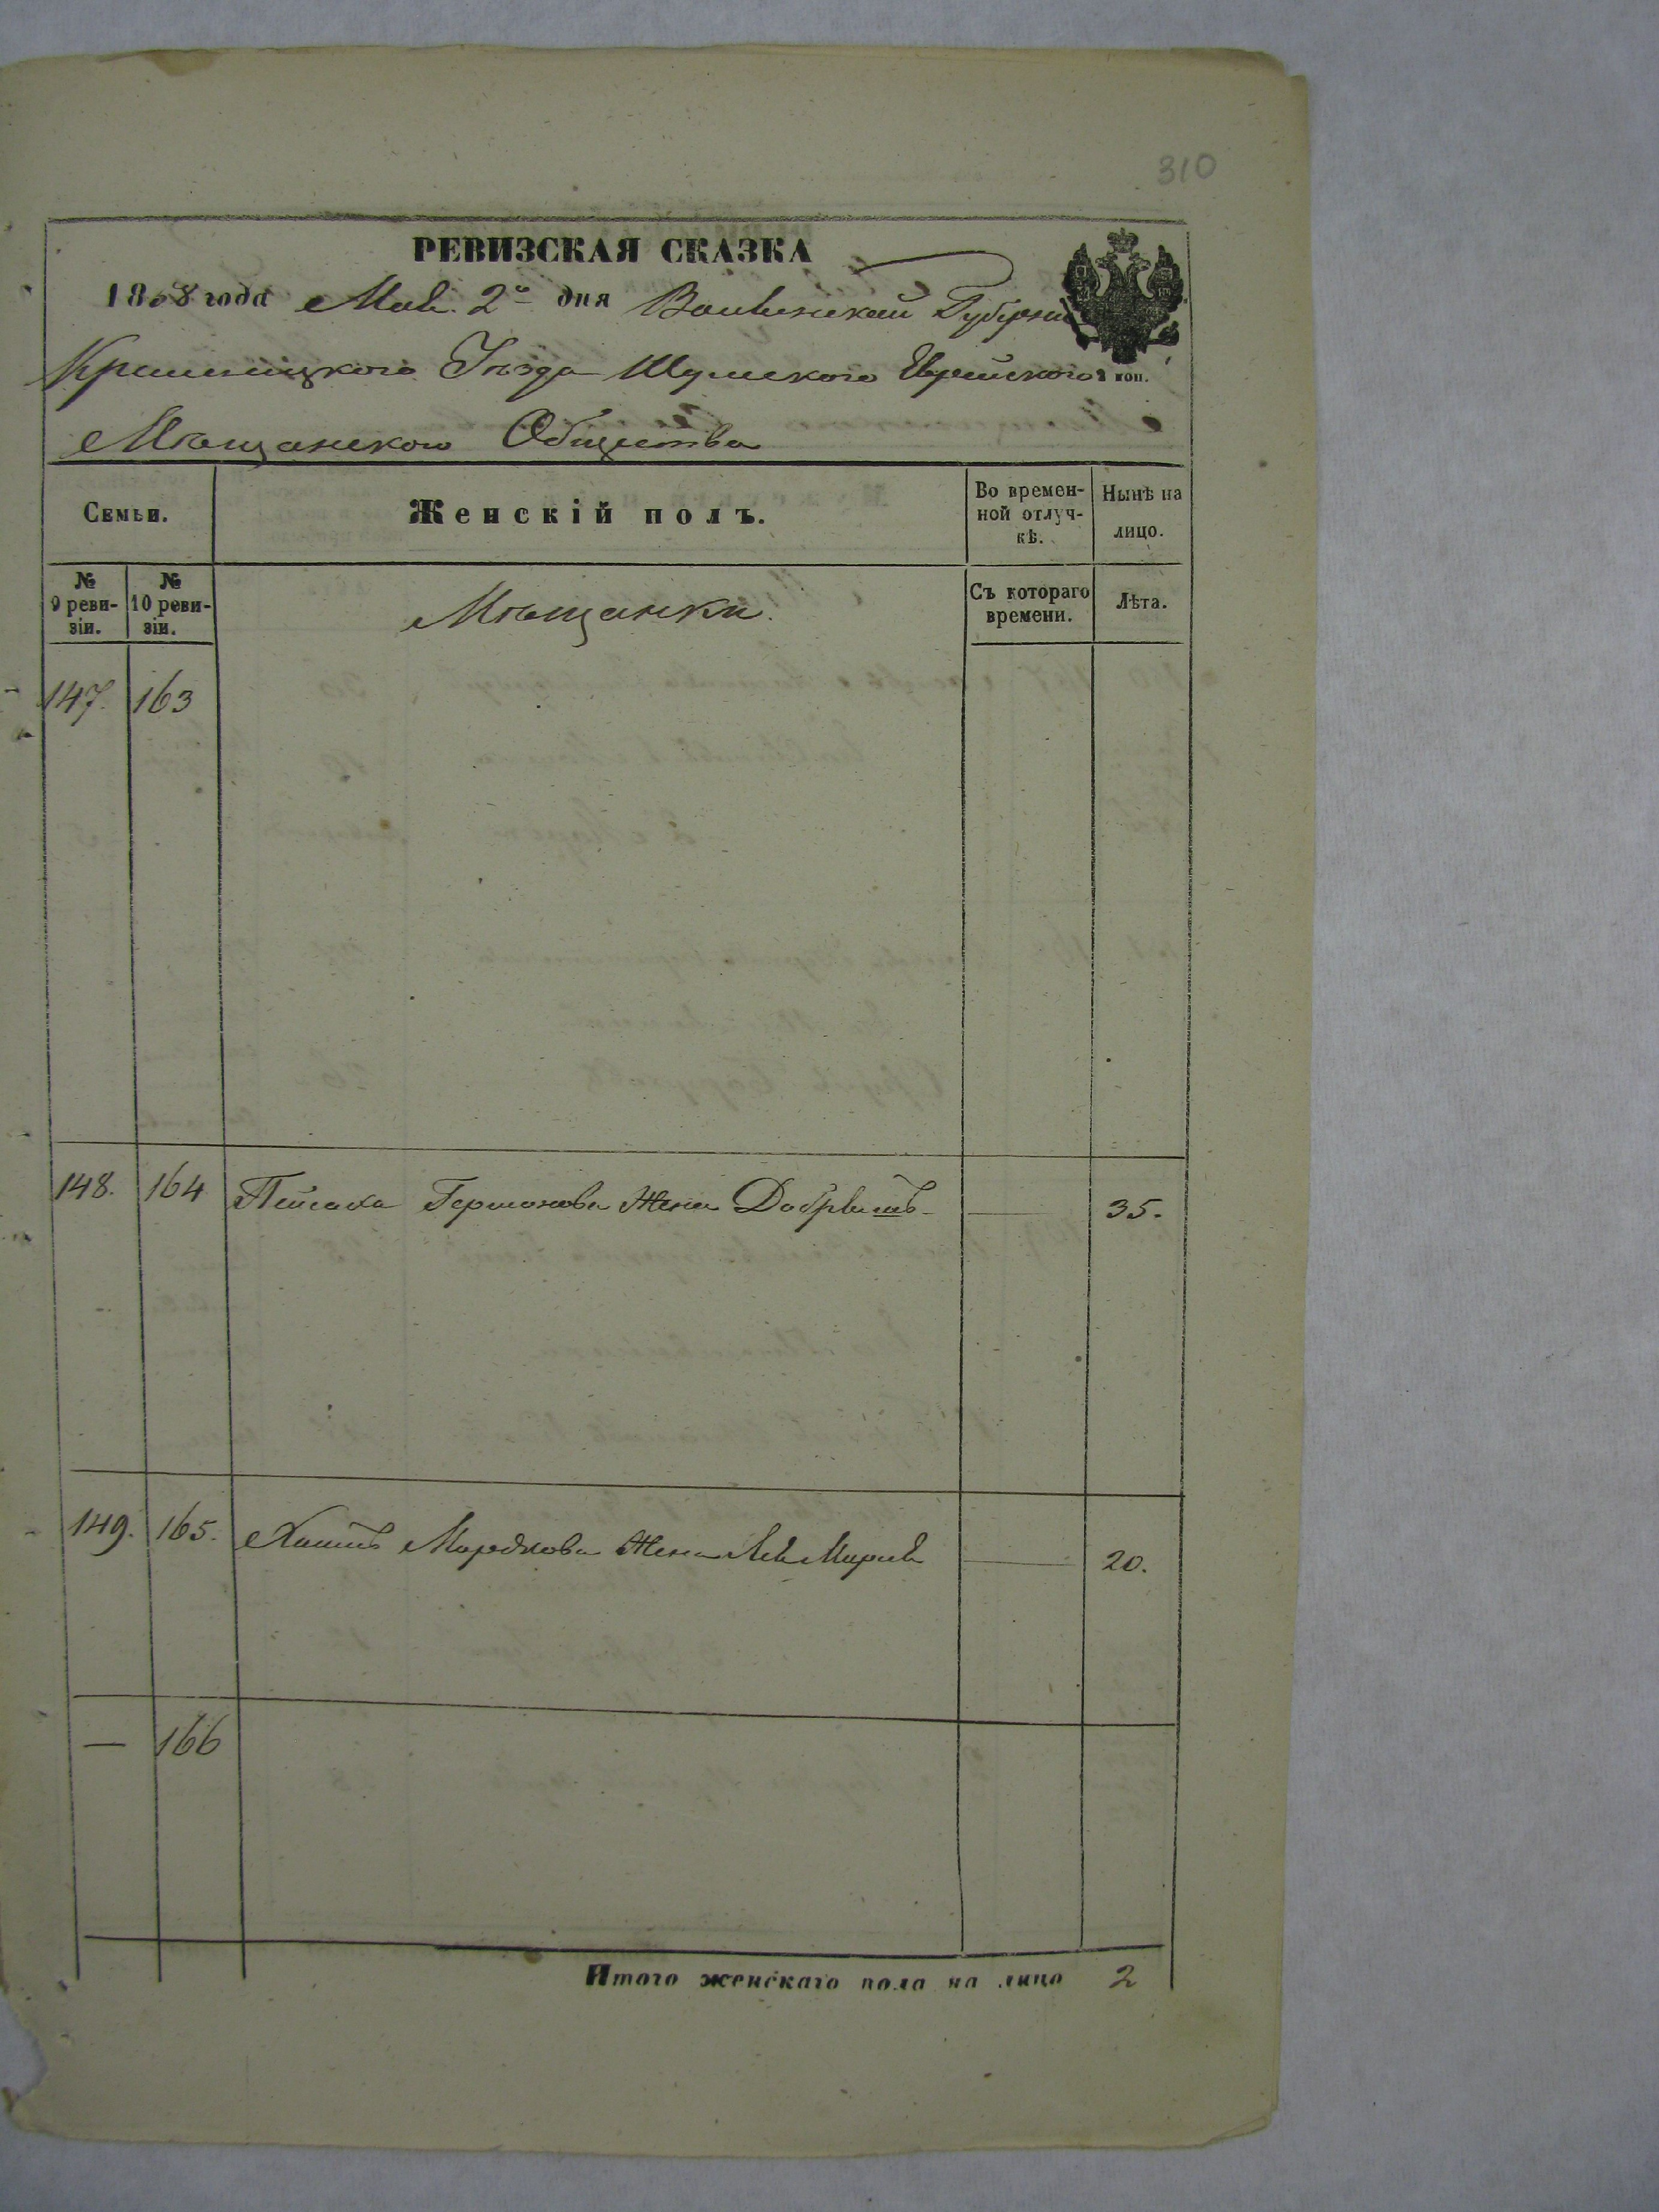 310
РЕВИЗСКАЯ СКАЗКА
1858 года Мая 2го дня Волынской Губерніи
Кременецкого Уѣзда Шумского Еврейского
коп.
Мѣщанского Общества
Семьи. Женскій полъ. Во времен-ной отлуч-кѣ. Нынѣ на лицо.
№ 9 реви-зіи. № 10 реви-зіи. Мѣщанки. Съ котораго времени. Лѣта.
147. 163
148. 164 Пейсаха Гершонова Жена Добрышъ — 35.
149. 165. Мордкова Жена — 20.
— 166
Итого женскаго пола на лицо 2